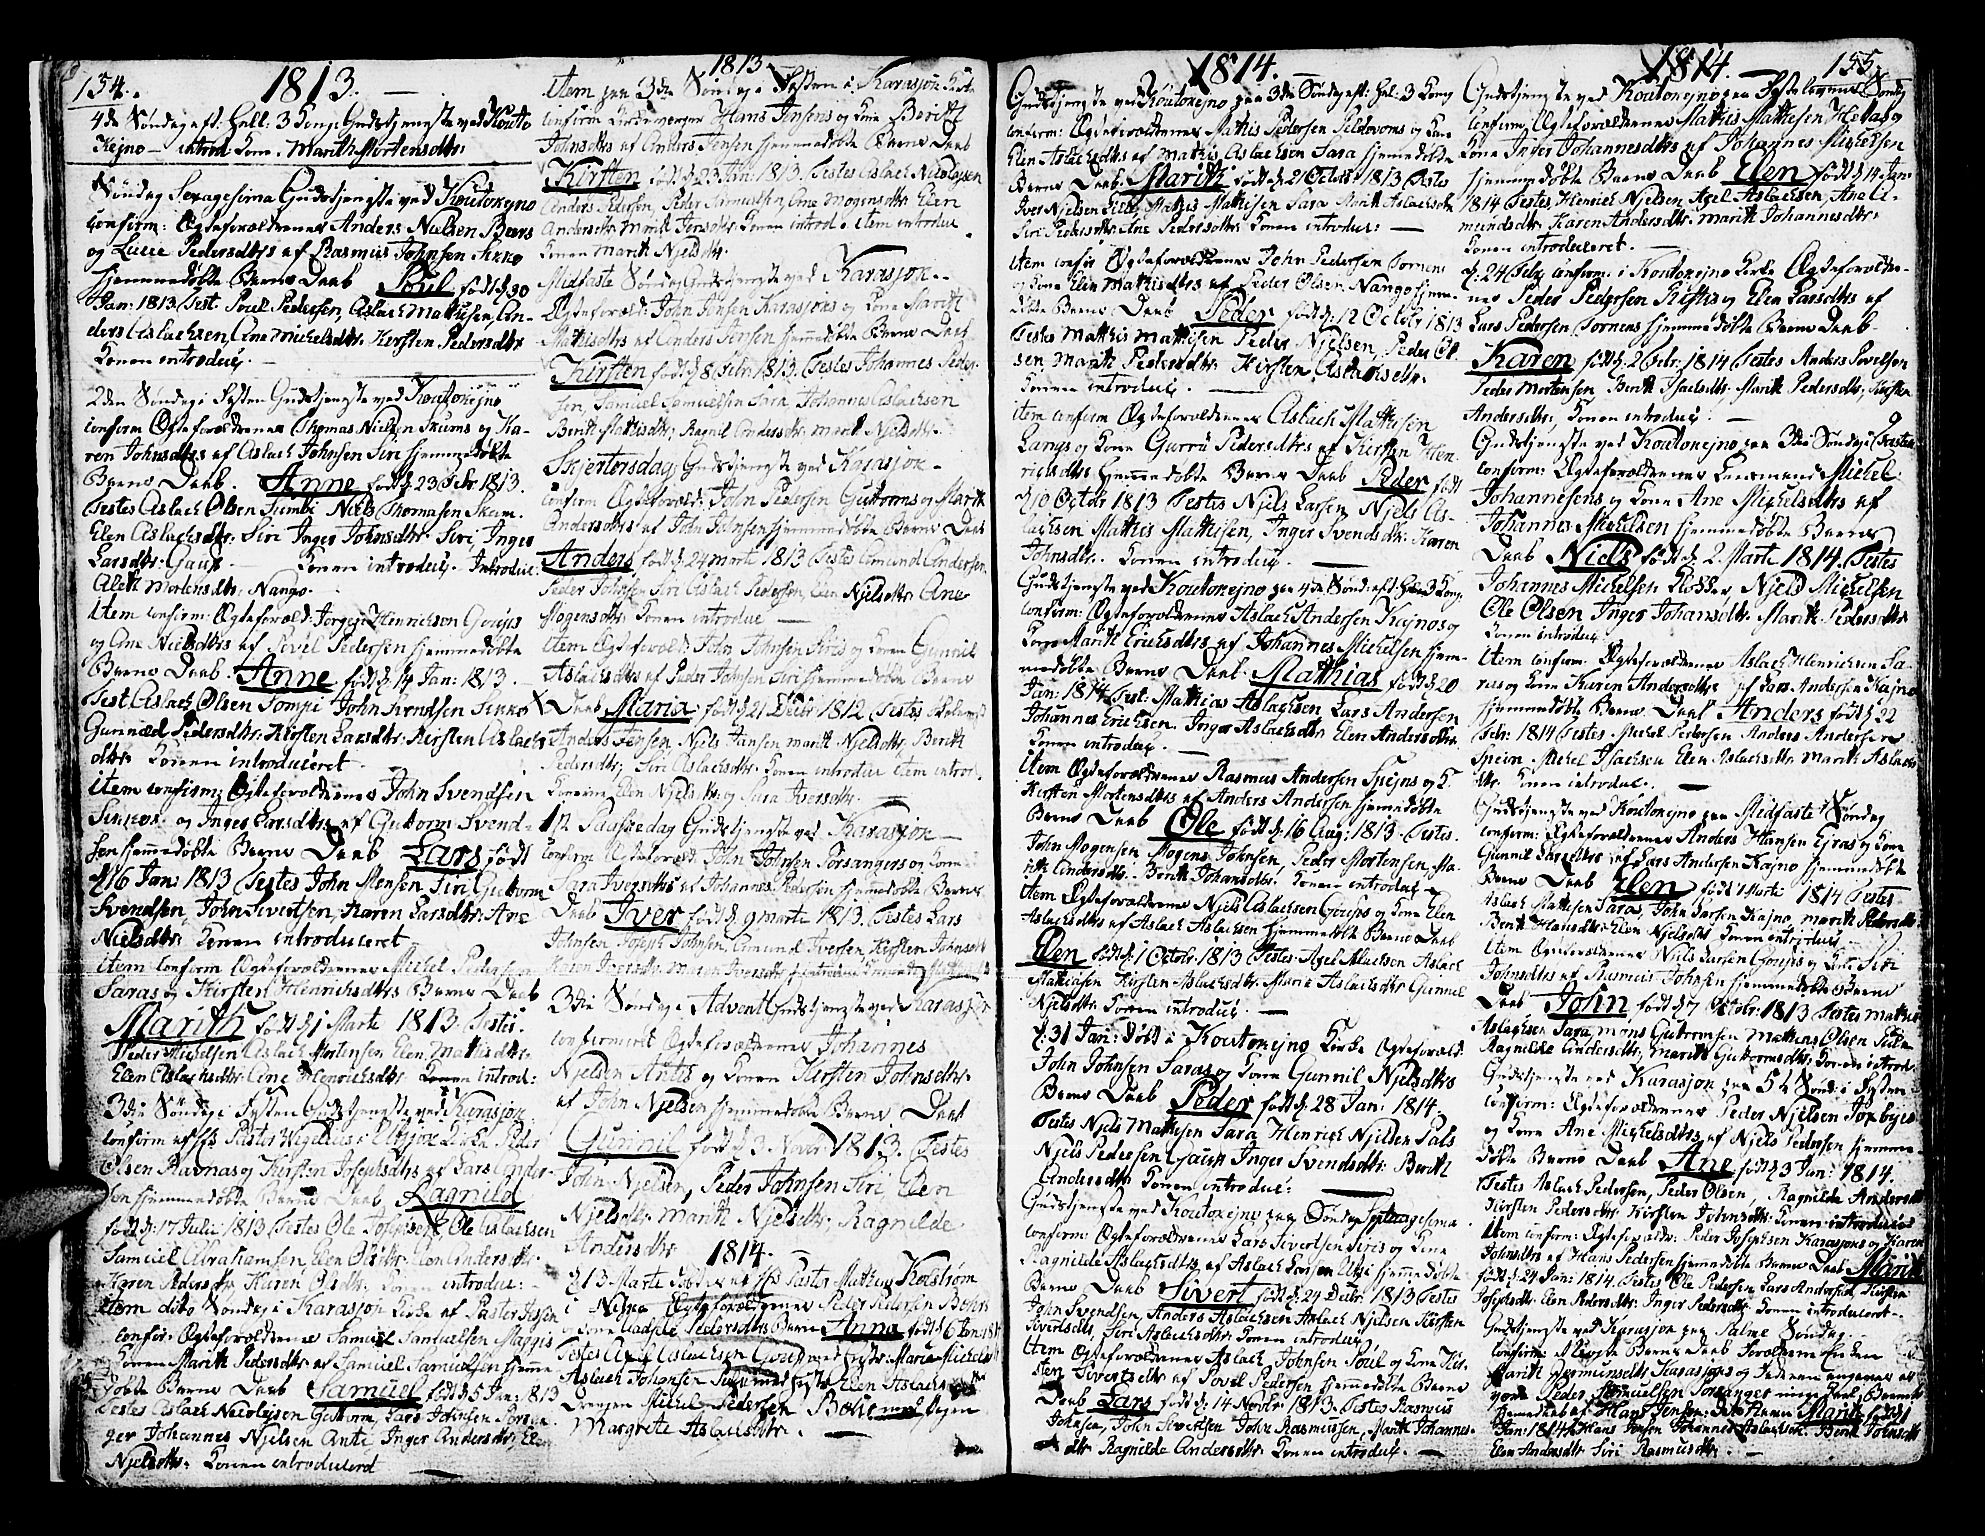 154.
1813.
4de Søndag eft: Hell: 3 Kong: Gudstjenste ved Kouto
Kejno introd Kone. Marith Mortensdtr:
Søndag Sexagesima Gudstjengste ved Koutokejno
confirm: Ægteforældrenes Anders Nielsen Bæhrs
og Lucie Pedersdtrs af Rasmus Johnsen Sikko
hjemmedøbte Barns Daab Povl født d 30
Jan: 1813 Test. Povel Pedersen, Aslach Mathisen, An-
ders Aslachsen, Ane Michelsdtr: Kirsten Pedersdtr
Konen introduc: —
2den Søndag i Fasten Gudstjengste ved Koutokejno
confirm Ægteforældrenes Thomas Nielsen Skums og Ka-
ren Johnsdtrs af Aslach Johnsen Siri hjemmedøbte
Barns Daab. Anne født d 23 Febr. 1813.
Testes Aslach Olsen Sumbi Niels Thomasen Skum.
Elen Aslachsdtr: Siri Inger Johnsdtr: Siri, Inger
Larsdtr: Gaup — Konen introduc: Introduc:
Aleth Mortensdtr: Nango.
item confirm: Ægteforæld: Jørgen Henrichsen Goups
og Ane Nielsdtrs af Povel Pedersen hjemmedøbte
Barns Daab. Anne født d 14 Jan: 1813. —
Test Aslach Olsen Sompi John Svendsen Sikko
Gunnild Pedersdtr: Kirsten Larsdtr: Kirsten Aslachs
dtr: Konen introduceret —
item confirm: Ægteforældrenes John Svendsen
Sikkok og Inger Larsdtrs af Guttorm Svend-
sen hjemmedøbte Barns Daab Lars født
d 16 Jan: 1813 Testes John Monsen Siri Guttorm
Svendsen, John Sivertsen, Karen Larsdtr: Ane
Nielsdtr: Konen introduceret
item confirm Ægteforældrenes Michel Pedersen
Saras og Kirsten Henrichsdtrs Barns Daab
Marith født d 1 Marts 1813. Testis.
Peder Michelsen Aslach Mortensen Elen Mathisdtr:
Elen Aslachsdtr: Ane Henrichsdtr: Konen introd:
3die Søndag i Fasten Gudstjengste ved Karasjok
Olsen Ravnas og Kirsten Josephsdtrs af Lars Ander-
sen hjemmedøbte Barns Daab Ragnild
født d: 17 Julii 1813 Testes Ole Josephsen Ole Aslachsen
Samuel Abrahamsen, Elen Olsdtr:
Karen Pedersdtr: Karen Olsdtr: Konen introduc: —
Item dito Søndag i Karasjok Kirke af Pastor
confir: Ægteforældrenes Samuel Samuelsen
Konen Marith Pedersdtrs af Samuel Samuelsen hjemme
døbte Barns Daab Samuel født d 5 Jan: 1813
Testes Aslach Nicolajsen Guttorm, Lars Johnsen Porsan-
ger Johannes Njelsen Anti, Inger Andersdtr: Elen
Njelsdtr: Konen introducerd —
1813
Item paa 3die Søndag i Fasten i Karasjok Kirke
confirm Kirkeværger Hans Jensens og Kone Berith
Johnsdtrs af Anders Jensen hjemmedøbte Barns Daab
Kirsten født d 23 Jan: 1813 Testes Aslach Nicolajsen
Anders Pedersen, Peder Samuelsen, Ane Mogensdtr: Elen
Andersdtr: Marith Jonsdtr: Konen introd. Item introduc
Konen Marith Njelsdtr.
Midfaste Søndag Gudstjengste ved Karasjok —
Ægteforæld: John Jonsen Karasjoks og Kone Marith
Mathisdtrs af Anders Jensen hjemmedøbte Barns Daab
Kirsten født d 8 Febr. 1813. Testes Johannes Peder-
sen, Samuel Samuelsen Sara Johannes Aslachsen
Berith Mathisdtr: Ragnil Andersdtr: Marith Njelsdtr.
Skjertorsdag Gudstjengste ved Karasjok —
confirm Ægteforæld: John Pedersen Guttorms og Marith
Andersdtrs af John Johnsen hjemmedøbte Barns Daab
Anders født d. 24 Marts 1813 Testes Amund Andersen
Peder Johnsen Siri Aslach Pedersen, Elen Njelsdtr: Ane
Mogensdtr: Konen introduc —
item Ægteforæld: John Johnsen Siris og Konen Gunnil
Aslachsdtrs af Peder Johnsen Siri hjemmedøbte Barns
Daab Maria født d 21 Decbr 1812 Testes
Anders Jensen Niels Jansen Marith Njelsdtr: Berith
Pedersdtr: Siri Aslachsdtr: Konen introduc item introd.
Konerne Elen Njelsdtr og Sara Iversdtr: —
1ste Paaskedag Gudstjengste ved Karasjok —
confirm Ægteforæld: John Johnsen Porsangers og Kone
Sara Iversdtrs af Johannes Pedersen hjemmedøbte Barns
Daab Iver født d. 9 Marts 1813. Testes Lars
Johnsen Joseph Johnsen, Amund Iversen, Kirsten Johnsdtr
Karen Iversdtr:
3die Søndag i Advent Gudstjengste ved Karasjok
confirmeret Ægteforældrenes Johannes
Njelsen Antis og Konen Kirsten Johnsdtrs
af John Njelsen hjemmedøbte Barns Daab
Gunnil født d 3 Novbr 1813. Testes
John Njelsen, Peder Johnsen Siri, Elen
Njelsdtr: Marith Njelsdtr. Ragnilde
Andersdtr
1814.
d 13 Marts døbt af Hr Pastor Mathias Kolstrøm
i Ægteforældrenes Peder Pedersen Bohns
og Kone Pedersdtrs Barn Anna født d 6 Jan: 1814
Aslach Johansen Elen Aslachsdtr
Drengen Michel Pedersen Bohn
Margrete Aslachsdtr: —
1814.
Gudstjengste ved Koutokejno paa 3die Søndag eft: Hel: 3 Kong
confirm: Ægteforældrenes Mathis Pedersen Peldovoms og Kone
Elen Aslachsdtrs af Mathis Aslachsen Sara hjemmedøbte
Barns Daab. Marith født d 21 Octobr 1813 Testes
Iver Njelsen Mathis Mathisen Sara Marith Aslachsdtr
Siri Pedersdtr: Ane Pedersdtr: Konen introduc: —
item confir Ægteforældrenes John Pedersen Tornens
og Kone Elen Mathisdtrs af Peder Olsen Nango hjem-
døbte Barns Daab Peder født d. 12 Octobr 1813
Testes Mathis Mathisen Peder Njelsen, Peder Ol-
sen, Marith Pedersdtr: Kirsten Aslachsdtr.
Konen introduc. —
item confirm Ægteforældrenes Aslach Mathisen
Langs og Konen Gurro Pedersdtrs af Kirsten Hen-
richsdtrs hjemmedøbte Barns Daab Peder født
d 10 Octobr 1813 Testes Niels Larsen Njels As-
lachsen Mathis Mathisen, Inger Svendsdtr: Karen
Johnsdtr. Konen introduc. —
Gudstjengste ved Koutokejno paa 4de Sønd: eft: Hel: 3 Kong.
confirm: Ægteforældrenes Aslach Andersen Kajnos og
Kone Marith Erichsdtrs af Johannes Michelsen hjem-
medøbte Barns Daab. Mathias født d 20
Jan: 1814 Test: Mathias Aslachsen Lars Andersen
Johannes Erichsen, Inger Aslachsdtr. Elen Andersdtr.
Konen introduc. —
item Ægteforældrenes Rasmus Andersen Spejns og K.
Kirsten Mortensdtrs af Anders Andersen hjemmedøbte
Barns Daab Ole født d. 16 Aug: 1813 — Testes.
John Mogensen Mogens Johnsen, Peder Mortensen, Ma-
rith Andersdtr: Berith Johansdtr: Konen introduc —
item Ægteforældrenes Niels Aslachsen Goups og Kone Elen
Aslachsdtrs af Aslach Aslachsen hjemmedøbte Barns Daab
Elen født d. 1 Octobr. 1813 Testes: Axel Aslachsen Aslach
Mathisen Kirsten Aslachsdtr Maria Aslachsdtr Gunnil
Njelsdtr: Konen introduc: —
d. 31 Jan: døbt i Koutokejno Kirke Ægteforæld:
John Johnsen Saras og Kone Gunnil Njelsdtrs
Barns Daab Peder født d. 28 Jan: 1814.
Testes Njels Mathisen Sara Henrich Njelsen Pals
Njels Pedersen Gaup Inger Svendsdtr: Berith
Andersdtr: Konen introduc:
Gudstjengste ved Koutokejno paa Søndag Septuagesima
confirm: Ægteforældrenes Lars Sivertsen Siris og Kone
Ragnilde Aslachsdtrs af Aslach Larsen Utsi hjemmedøbte
Barns Daab Sivert født d. 24 Decbr. 1813 Testes
John Svendsen, Anders Aslachsen Aslach Njelsen Kirsten
Sivertsdtr, Siri Aslachsdtr: Konen introduc:
item Ægteforældrenes Aslach Johnsen Povl og Kone Kir-
sten Sivertsdtrs af Povel Pedersen hjemmedøbte Barns
Daab Lars født d. 14 Novbr: 1813. Testes Rasmus
Johnsen, John Sivertsen John Rasmussen, Marith Johannes-
dtr Ragnilde Andersdtr: Konen introduc. —
1814.
155.
Gudstjengste ved Koutokejno paa Fastelavns Søndag
confirm Ægteforældrenes Mathis Mathisen Hettas og
Kone Inger Johannesdtrs af Johannes Michelsen
hjemmedøbte Barns Daab Elen født d. 14 Jan:
1814 Testes, Henrich Njelsen Axel Aslachsen, Ane A-
mundsdtr: Karen Andersdtr: Marith Johannesdtr:
Konen introduceret. —
d. 24 Febr confirm: i Koutokejno Kirke Ægteforældre-
nes Peder Pedersen og Elen Larsdtrs af
Lars Pedersen Tornens hjemmedøbte Barns Daab.
Karen født d. 2 Febr. 1814 Testes Anders Povelsen
Peder Mortensen Berith Isachsdtr: Marith Pedersdtr: Kirsten
Andersdtr: Konen introduc: —
Gudstjengste ved Koutokejno paa 3die Søndag i Fasten
confirm: Ægteforældrenes Leensmand Michel
Johannesens og Kone Ane Michelsdtrs af
Johannes Michelsen hjemmedøbte Barns
Daab Niels født d. 2. Marts 1814. Testes
Johannes Michelsen Klodder, Njels Michelsen
Ole Olsen Inger Johansdtr: Marith Pedersdtr.
Konen introduc
item confirm: Ægteforældrenes Aslach Henrichsen Sa-
ras og Kone Karen Andersdtrs af Lars Andersen Kajno
hjemmedøbte Barns Daab Anders født d. 22
Febr. 1814 Testes Michel Pedersen Anders Andersen
Spein Michel Isachsen Elen Aslachsdtr: Marith Aslachs-
dtr: Konen introduc. —
Gudstjengste ved Koutokejno paa Midfaste Søndag
confirm: Ægteforældrenes Anders Hansen Ejras og Kone
Gunnil Larsdtrs af Lars Andersen Kajno hjemmedøbte
Barns Daab Elen født 1 Marts 1814 Testes
Aslach Mathisen Saras, John Larsen Kajno Marith Pedersdtr
Berith Hansdtr: Elen Njelsdtr Konen introduc. —
item Ægteforældrenes Niels Larsen Goups og Kone Siri
Johnsdtrs af Rasmus Johnsen hjemmedøbte Barns
Daab John født d 7 Octobr. 1813 Testes Mathis
Aslachsen Sara, Mons Guttormsen Mathis Olsen
Ragnilde Andersdtr: Marith Guttormsdtr: Konen introd
Gudstjengste ved Karasjok paa 5te Sønd: i Fasten
confirm: Ægteforældrenes Peder Njelsen
og Kone Ane Michelsdtrs af Njels Pedersen hjemme-
døbte Barns Daab Ane født d 3 Jan: 1814.
Testes Aslach Pedersen, Peder Olsen, Ragnilde Andersdtr
Kirsten Pedersdtr: Kirsten Johnsdtr: Konen introduc
item confirm: Ægteforældr: Peder Josephsen Karasjoks og Karen
Johnsdtrs af Hans Pedersen hjemmedøbte Barns Daab Marith
født d. 24 Jan: 1814. Testes Ole Pedersen Lars Andersen Kirsten
Josephsdtr: Elen Pedersdtr: Inger Pedersdtr: Konen introduceret —
Gudstjengste ved Karasjok paa Palme Søndag —
confirm: Barns Daab Forældrene
Marith Karasjoks og
Peder Samuelsen Porsanger
af Hans Jensen Marith født
Jan: 1814 Hans Jonsen Johannes Aslachsen Berith Johnsdtr
Elen Andersdtr: Siri Rasmusdtr: —